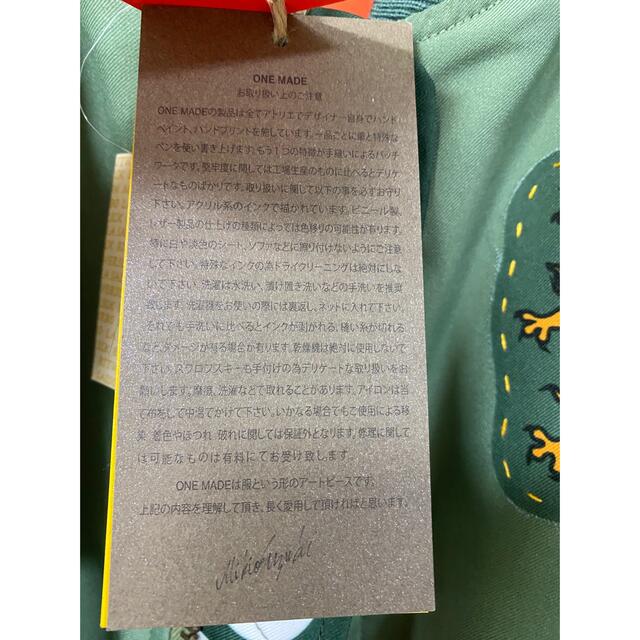 ONE MADE
お取り扱い上のご注意
ONE MADEの製品は全てアトリエでデザイナー自身でハンド
ペイント、ハンドプリントを施しています。一品ごとに筆と特殊な
ペンを使い書き上げます。もう1つの特徴が手縫いによるパッチ
ワークです。堅牢度に関しては工場生産のものに比べるとデリケ
ートなものばかりです。取り扱いに関して以下の事を必ずお守り
下さい。アクリル系のインクで描かれています。ビニール製、
レザー製品の仕上げの種類によっては色移りの可能性が有ります。
特に白や淡色のシート、ソファなどに擦り付けないようにご注意
して下さい。特殊なインクの為ドライクリーニングは絶対にしな
いで下さい。洗濯は水洗い、漬け置き洗いなどの手洗いを推奨
致します。洗濯機をお使いの際には裏返し、ネットに入れて下さい。
それでも手洗いに比べるとインクが剥がれる、縫い糸が切れる
など、ダメージが有る場合が有ります。乾燥機は絶対に使用しないで
下さい。スワロフスキーも手付けの為デリケートな取り扱いをお
願いします。摩擦、洗濯などで取れることがあります。アイロンは当
て布をして中温でかけて下さい。いかなる場合でもご使用による移
染 着色やほつれ 破れに関しては保証外となります。修理に関して
は可能なものは有料にてお受け致します。
ONE MADEは服という形のアートピースです。
上記の内容を理解して頂き、長く愛用して頂ければと思います。